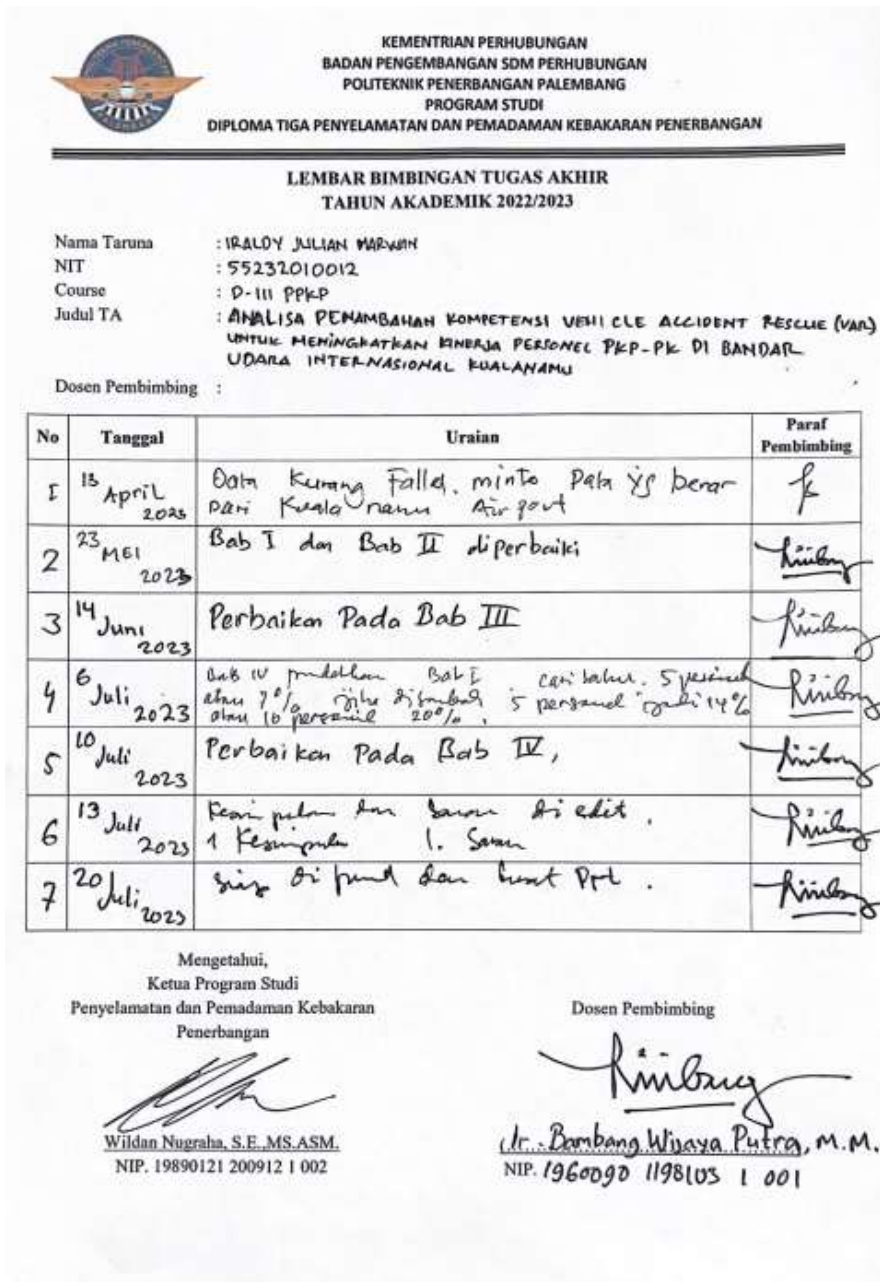 KEMENTRIAN PERHUBUNGAN
BADAN PENGEMBANGAN SDM PERHUBUNGAN
POLITEKNIK PENERBANGAN PALEMBANG
PROGRAM STUDI
DIPLOMA TIGA PENYELAMATAN DAN PEMADAMAN KEBAKARAN PENERBANGAN
LEMBAR BIMBINGAN TUGAS AKHIR
TAHUN AKADEMIK 2022/2023
Nama Taruna : IRALDY JULIAN MARWAN
NIT : 55232010012
Course : D-III PPKP
Judul TA : ANALISA PENAMBAHAN KOMPETENSI VEHICLE ACCIDENT RESCUE (VAR)
UNTUK MENINGKATKAN KINERJA PERSONEL PKP-PK DI BANDAR
UDARA INTERNASIONAL KUALANAMU
Dosen Pembimbing :
No Tanggal Uraian Paraf Pembimbing
1 13 April 2023 Data Kurang Falled. minto Data yg benar
Dari Kuala namu Air port
2 23 MEI 2023 Bab I dan Bab II diperbaiki
3 14 Juni 2023 Perbaikan Pada Bab III
4 6 Juli 2023 Bab IV Bab I 5 personil
atau 7% 5 personel 14%
atau 10 personil 20%.
5 10 Juli 2023 Perbaikan Pada Bab IV,
6 13 Juli 2023 Kesimpulan dan Saran di edit.
1 Kesimpulan 1. Saran
7 20 Juli 2023 siap di dan buat Ppt.
Mengetahui,
Ketua Program Studi
Penyelamatan dan Pemadaman Kebakaran
Penerbangan
Wildan Nugraha, S.E.,MS.ASM.
NIP. 19890121 200912 1 002
Dosen Pembimbing
Ir. Bambang Wijaya Putra, M.M.
NIP. 1960090 1198103 1 001